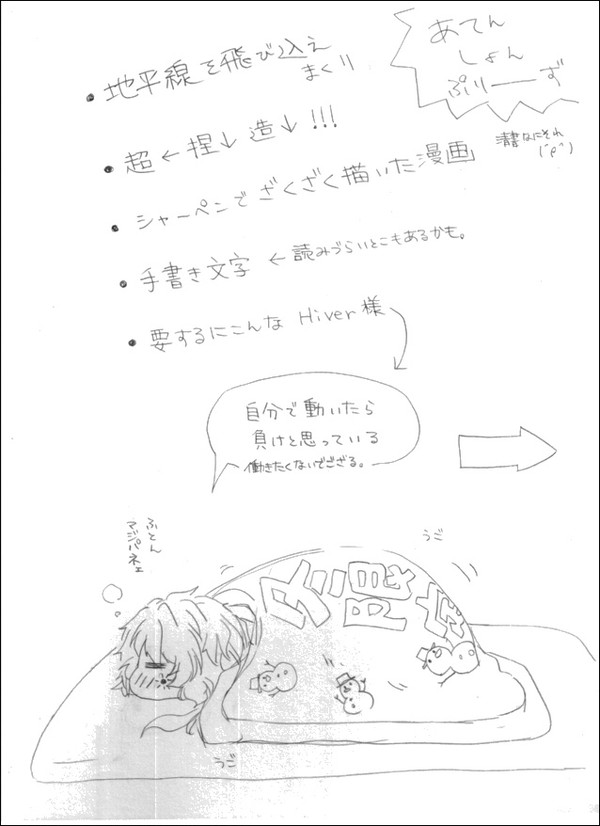 あてん
しょん
ぷりーーず
清書なにそれ
・地平線を飛び込え
まくり
・超←捏↓造↓!!!
・シャーペンでざくざく描いた漫画
・手書き文字 ←読みづらいとこもあるかも。
・要するにこんなHiver様
自分で動いたら
負けと思っている
働きたくないでござる。
ふとん
マジパネェ
うご
冬眠
うご